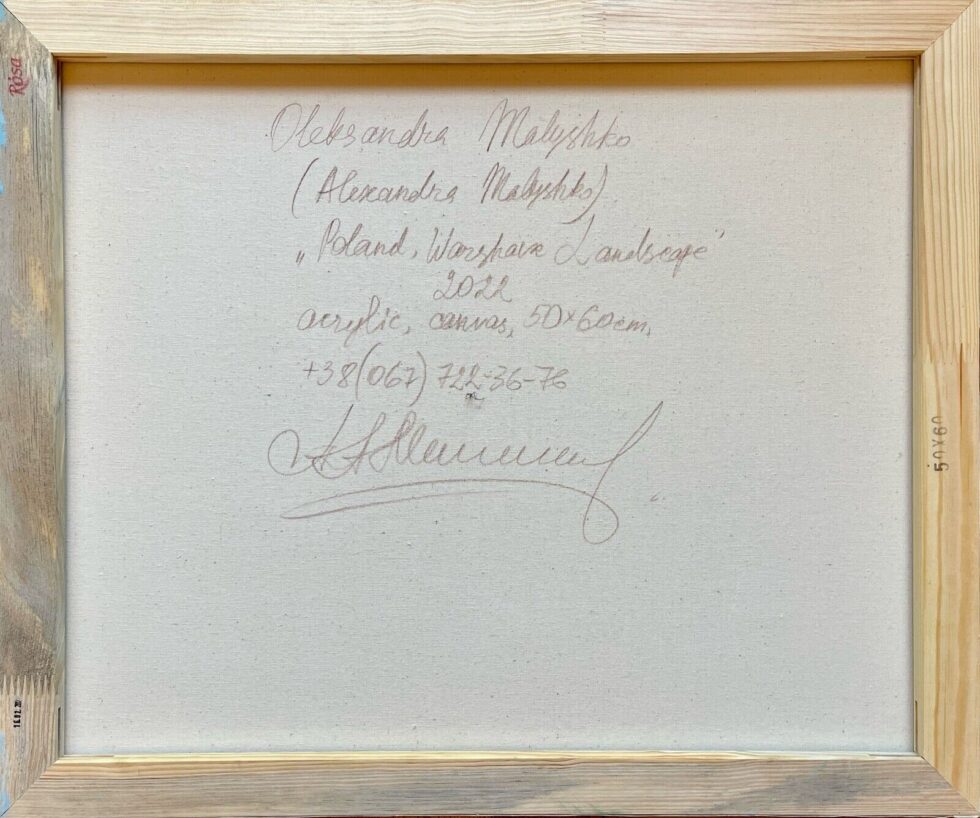 Rosa
Oleksandra Malyshko
(Alexandra Malyshko)
„Poland, Warshave Landscape"
2022
acrylic, canvas, 50×60cm,
+38(067) 722-36-76
50X60